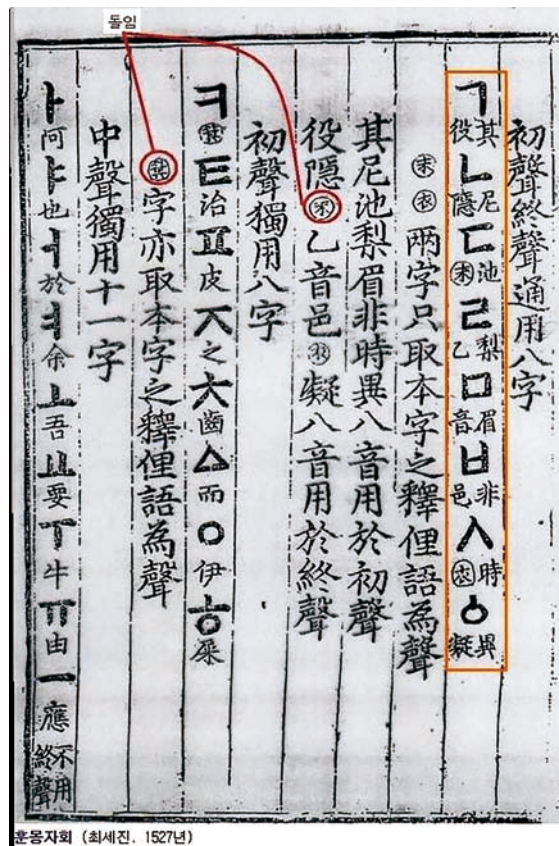 돌임
初聲終聲通用八字
ㄱ其役ㄴ尼隱ㄷ池末ㄹ梨乙ㅁ眉音ㅂ非邑ㅅ時衣ㆁ異凝
末衣兩字只取本字之釋俚語為聲
其尼池梨眉非時異八音用於初聲
役隱末乙音邑衣凝八音用於終聲
初聲獨用八字
ㅋ箕ㅌ治ㅍ皮ㅈ之ㅊ齒ㅿ而ㅇ伊ㅎ屎
箕字亦取本字之釋俚語為聲
中聲獨用十一字
ㅏ阿ㅑ也ㅓ於ㅕ余ㅗ吾ㅛ要ㅜ牛ㅠ由ㅡ應不用終聲
훈몽자회 (최세진. 1527년)